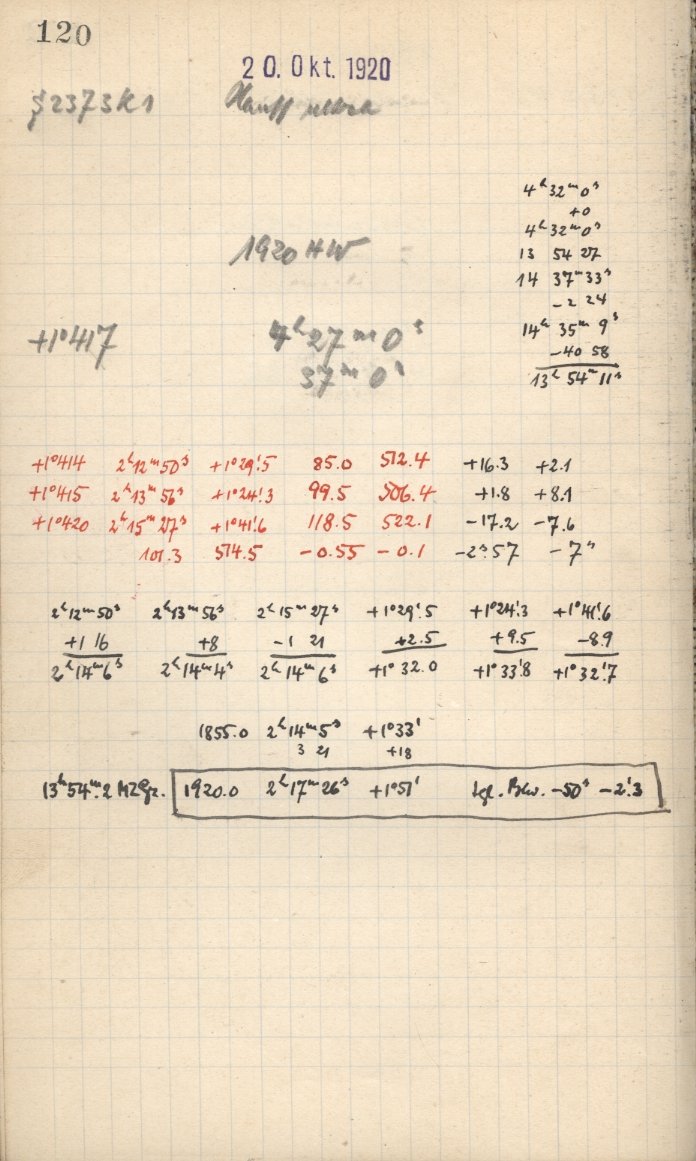 120
20. Okt. 1920
2373 K1
4ʰ32ᵐ0ˢ
+0
4ʰ32ᵐ0ˢ
13 54 27
1920 HW
14 37ᵐ33ˢ
-2 24
+1°417 4ʰ27ᵐ0ˢ
14ʰ 35ᵐ 9ˢ
-40 58
37ᵐ0ˢ
13ʰ54ᵐ11ˢ
+1°414 2ʰ12ᵐ50ˢ +1°29'.5 85.0 512.4 +16.3 +2.1
+1°415 2ʰ13ᵐ56ˢ +1°24'.3 99.5 506.4 +1.8 +8.1
+1°420 2ʰ15ᵐ27ˢ +1°41'.6 118.5 522.1 -17.2 -7.6
101.3 514.5 -0.55 -0.1 -2ˢ.57 -7"
2ʰ12ᵐ50ˢ 2ʰ13ᵐ56ˢ 2ʰ15ᵐ27ˢ +1°29'.5 +1°24'.3 +1°41'.6
+1 16 +8 -1 21 +2.5 +9.5 -8.9
2ʰ14ᵐ6ˢ 2ʰ14ᵐ4ˢ 2ʰ14ᵐ6ˢ +1°32.0 +1°33'.8 +1°32'.7
1855.0 2ʰ14ᵐ5ˢ +1°33'
3 21 +18
13ʰ54ᵐ.2 MZGr. 1920.0 2ʰ17ᵐ26ˢ +1°51' tgl. Bew. -50ˢ -2'.3